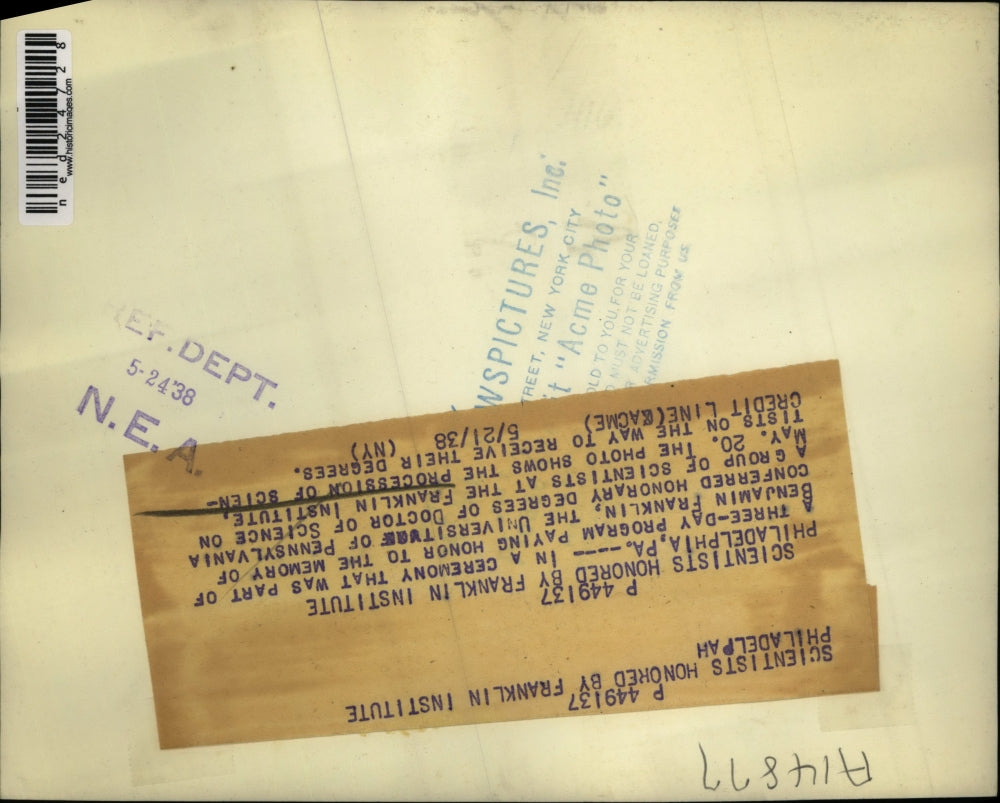 P 449137
SCIENTISTS HONORED BY FRANKLIN INSTITUTE
PHILADELPAH
P 449137
SCIENTISTS HONORED BY FRANKLIN INSTITUTE
PHILADELPHIA, PA.---- IN A CEREMONY THAT WAS PART OF
A THREE-DAY PROGRAM PAYING HONOR TO THE MEMORY OF
BENJAMIN FRANKLIN, THE UNIVERSITY OF PENNSYLVANIA
CONFERRED HONORARY DEGREES OF DOCTOR OF SCIENCE ON
A GROUP OF SCIENTISTS AT THE FRANKLIN INSTITUTE
MAY. 20. THE PHOTO SHOWS THE PROCESSION OF SCIEN-
TISTS ON THE WAY TO RECEIVE THEIR DEGREES.
CREDIT LINE(ACME) 5/21/38 (NY)
A14877
REF. DEPT.
5-24'38
N. E. A.
WSPICTURES, Inc.
TREET, NEW YORK CITY
it "Acme Photo"
OLD TO YOU FOR YOUR
D MUST NOT BE LOANED,
R ADVERTISING PURPOSES
RMISSION FROM US
ned24728
www.historicimages.com